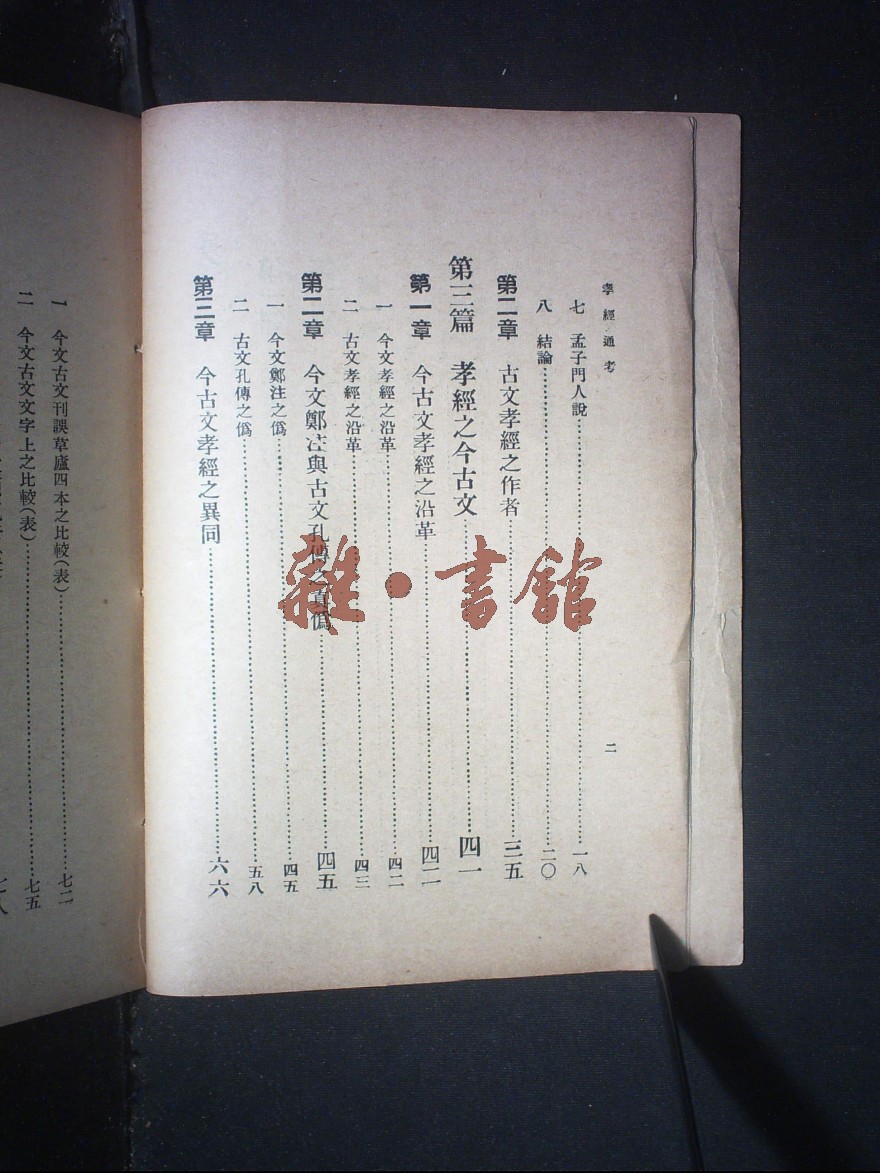 孝經通考
二
七　孟子門人說……一八
八　結論……二〇
第二章　古文孝經之作者……三五
第三篇　孝經之今古文……四一
第一章　今古文孝經之沿革……四二
一　今文孝經之沿革……四二
二　古文孝經之沿革……四三
第二章　今文鄭注與古文孔傳之真僞……四五
一　今文鄭注之僞……四五
二　古文孔傳之僞……五八
第三章　今古文孝經之異同……六六
一　今文古文刊誤草廬四本之比較(表)……七二
二　今文古文文字上之比較(表)……七五
七八
雜·書館